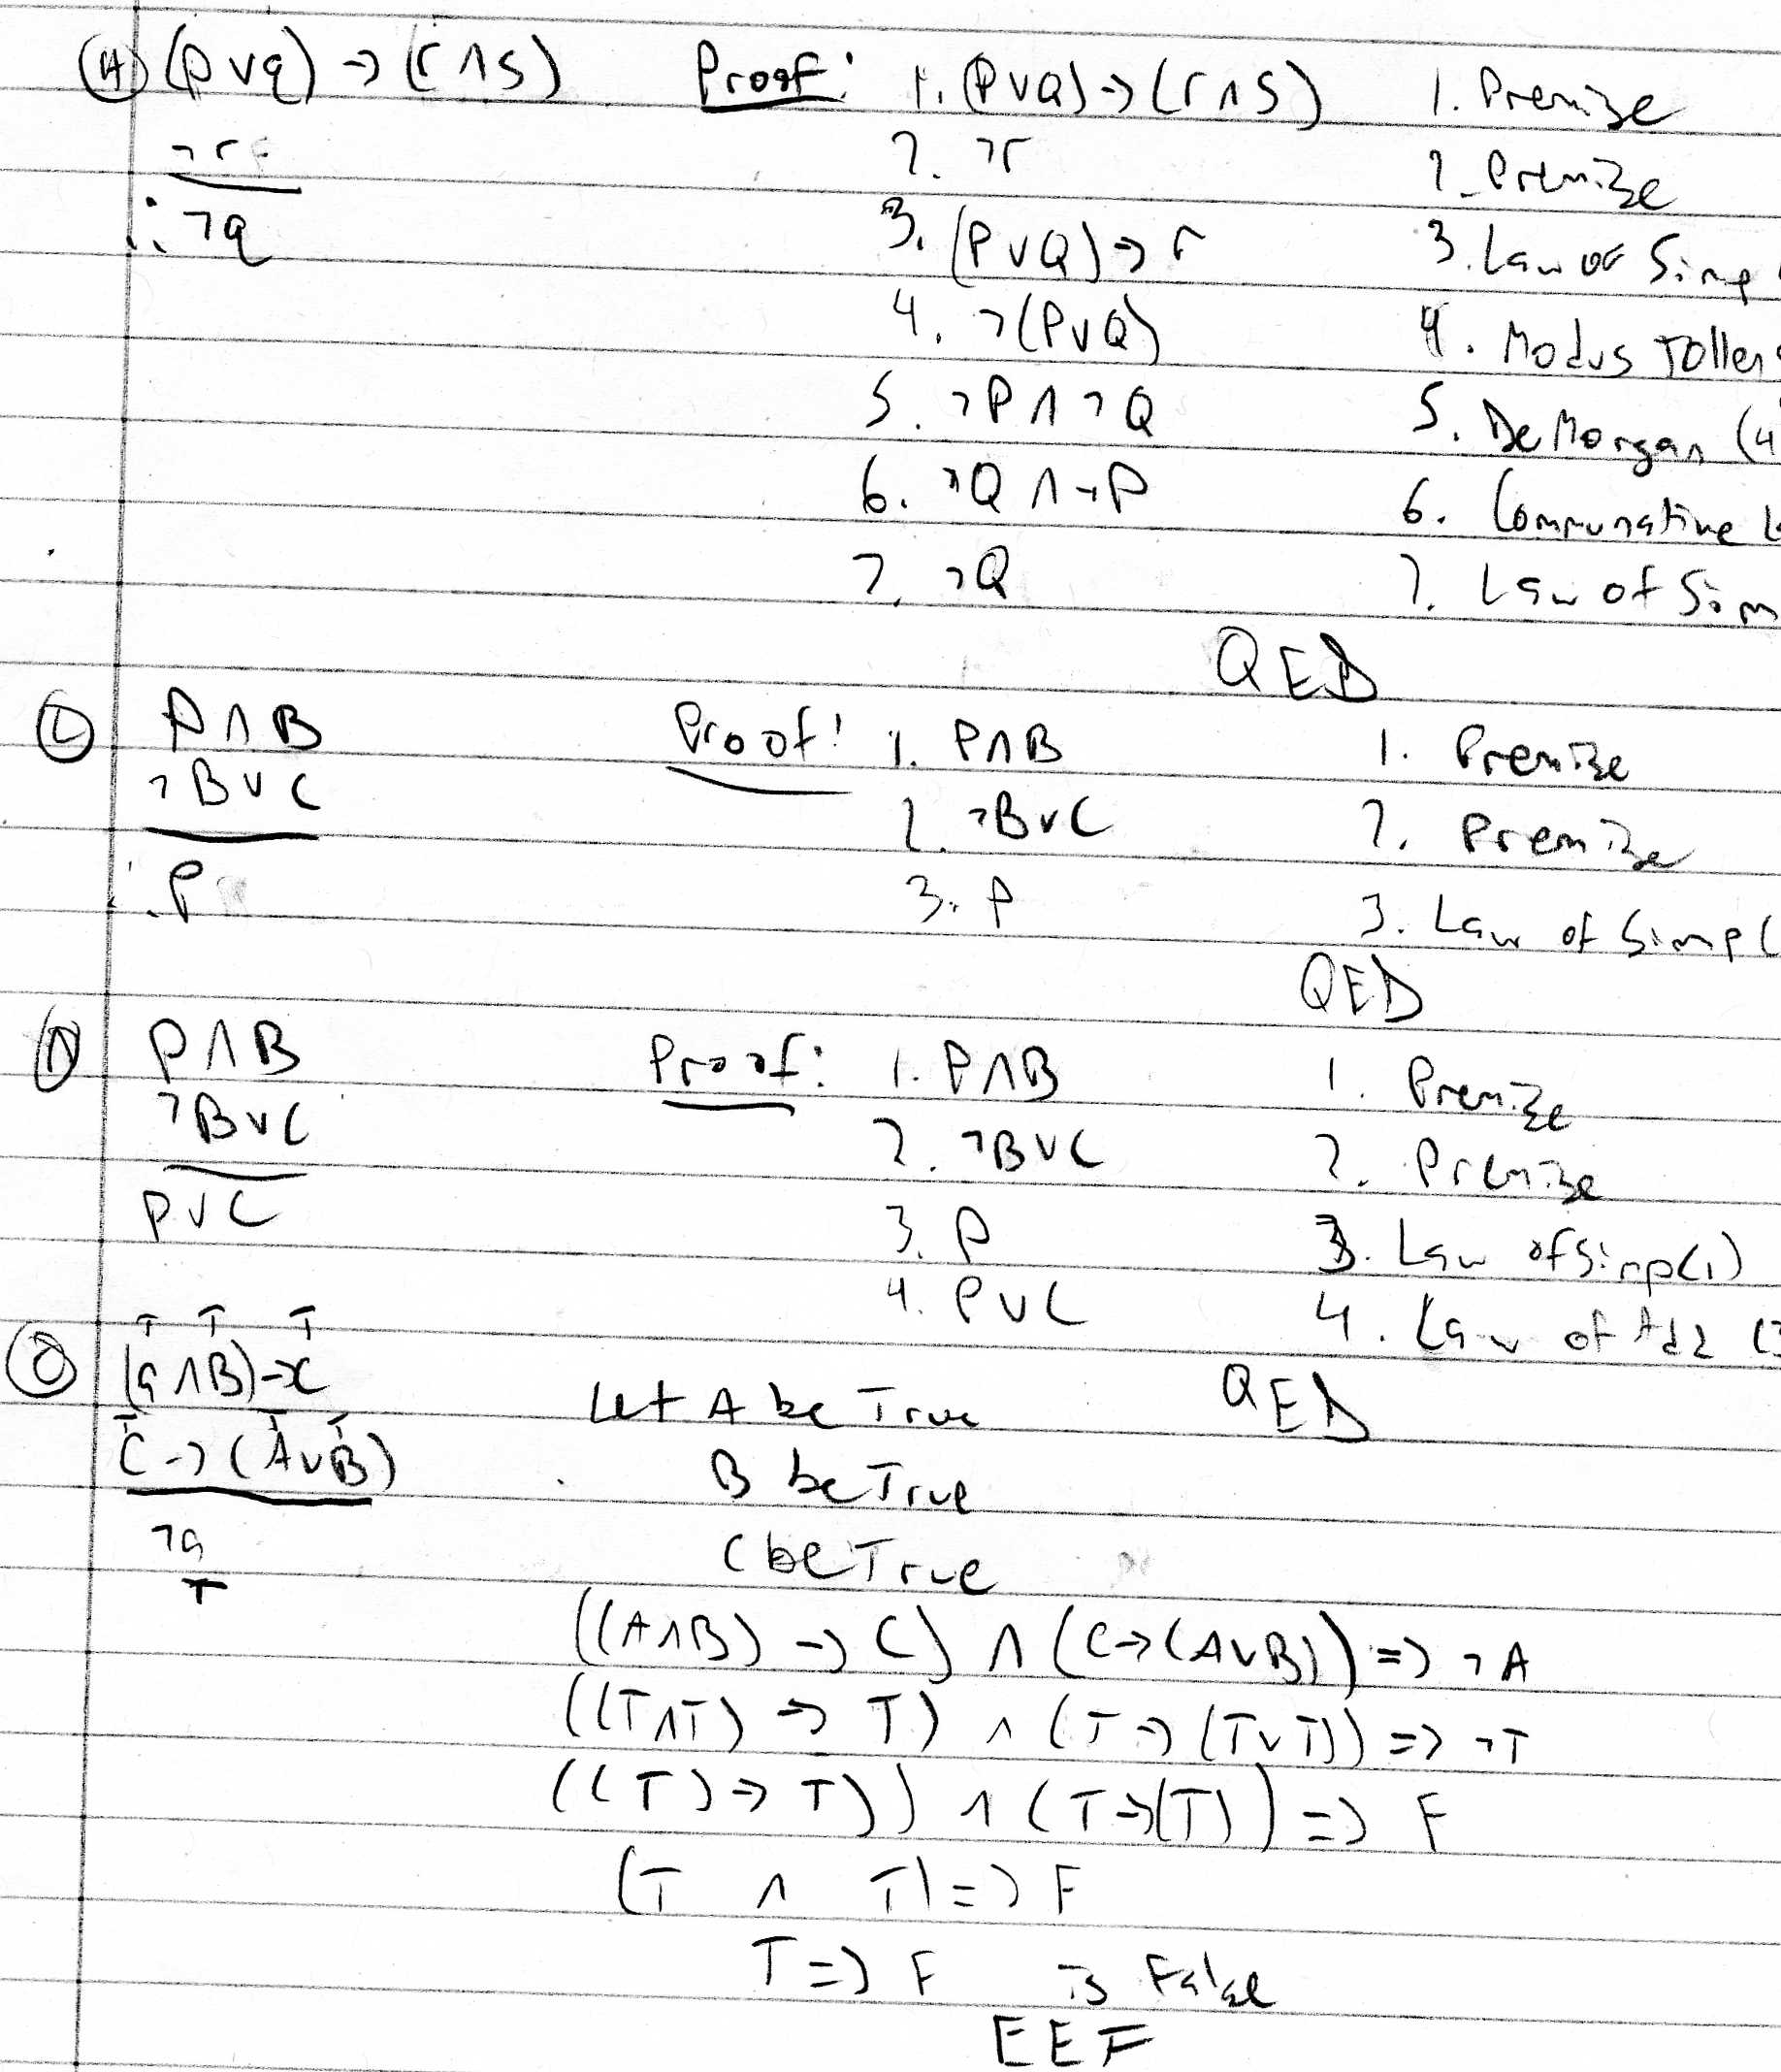 (H) (p ∨ q) → (r ∧ s) Proof: 1. (P ∨ Q) → (r ∧ S) 1. Premize
¬r 2. ¬r 2. Premize
∴ ¬q 3. (P ∨ Q) → r 3. Law of Simp
4. ¬(P ∨ Q) 4. Modus Tollens
5. ¬P ∧ ¬Q 5. DeMorgan (4
6. ¬Q ∧ ¬P 6. Communative L
7. ¬Q 7. Law of Sim
QED
P ∧ B Proof: 1. P ∧ B 1. Premize
¬B ∨ C 2. ¬B ∨ C 2. Premize
∴ P 3. P 3. Law of Simpl
QED
P ∧ B Proof: 1. P ∧ B 1. Premize
¬B ∨ C 2. ¬B ∨ C 2. Premize
P ∨ C 3. P 3. Law of Simp(1)
4. P ∨ C 4. Law of Add (3
T T T
(a ∧ B) → c Let A be True QED
T T T
C → (A ∨ B) B be True
¬a C be True
T
((A ∧ B) → C) ∧ (C → (A ∨ B)) => ¬A
((T ∧ T) → T) ∧ (T → (T ∨ T)) => ¬T
((T) → T)) ∧ (T → (T)) => F
(T ∧ T) => F
T => F is False
EEF